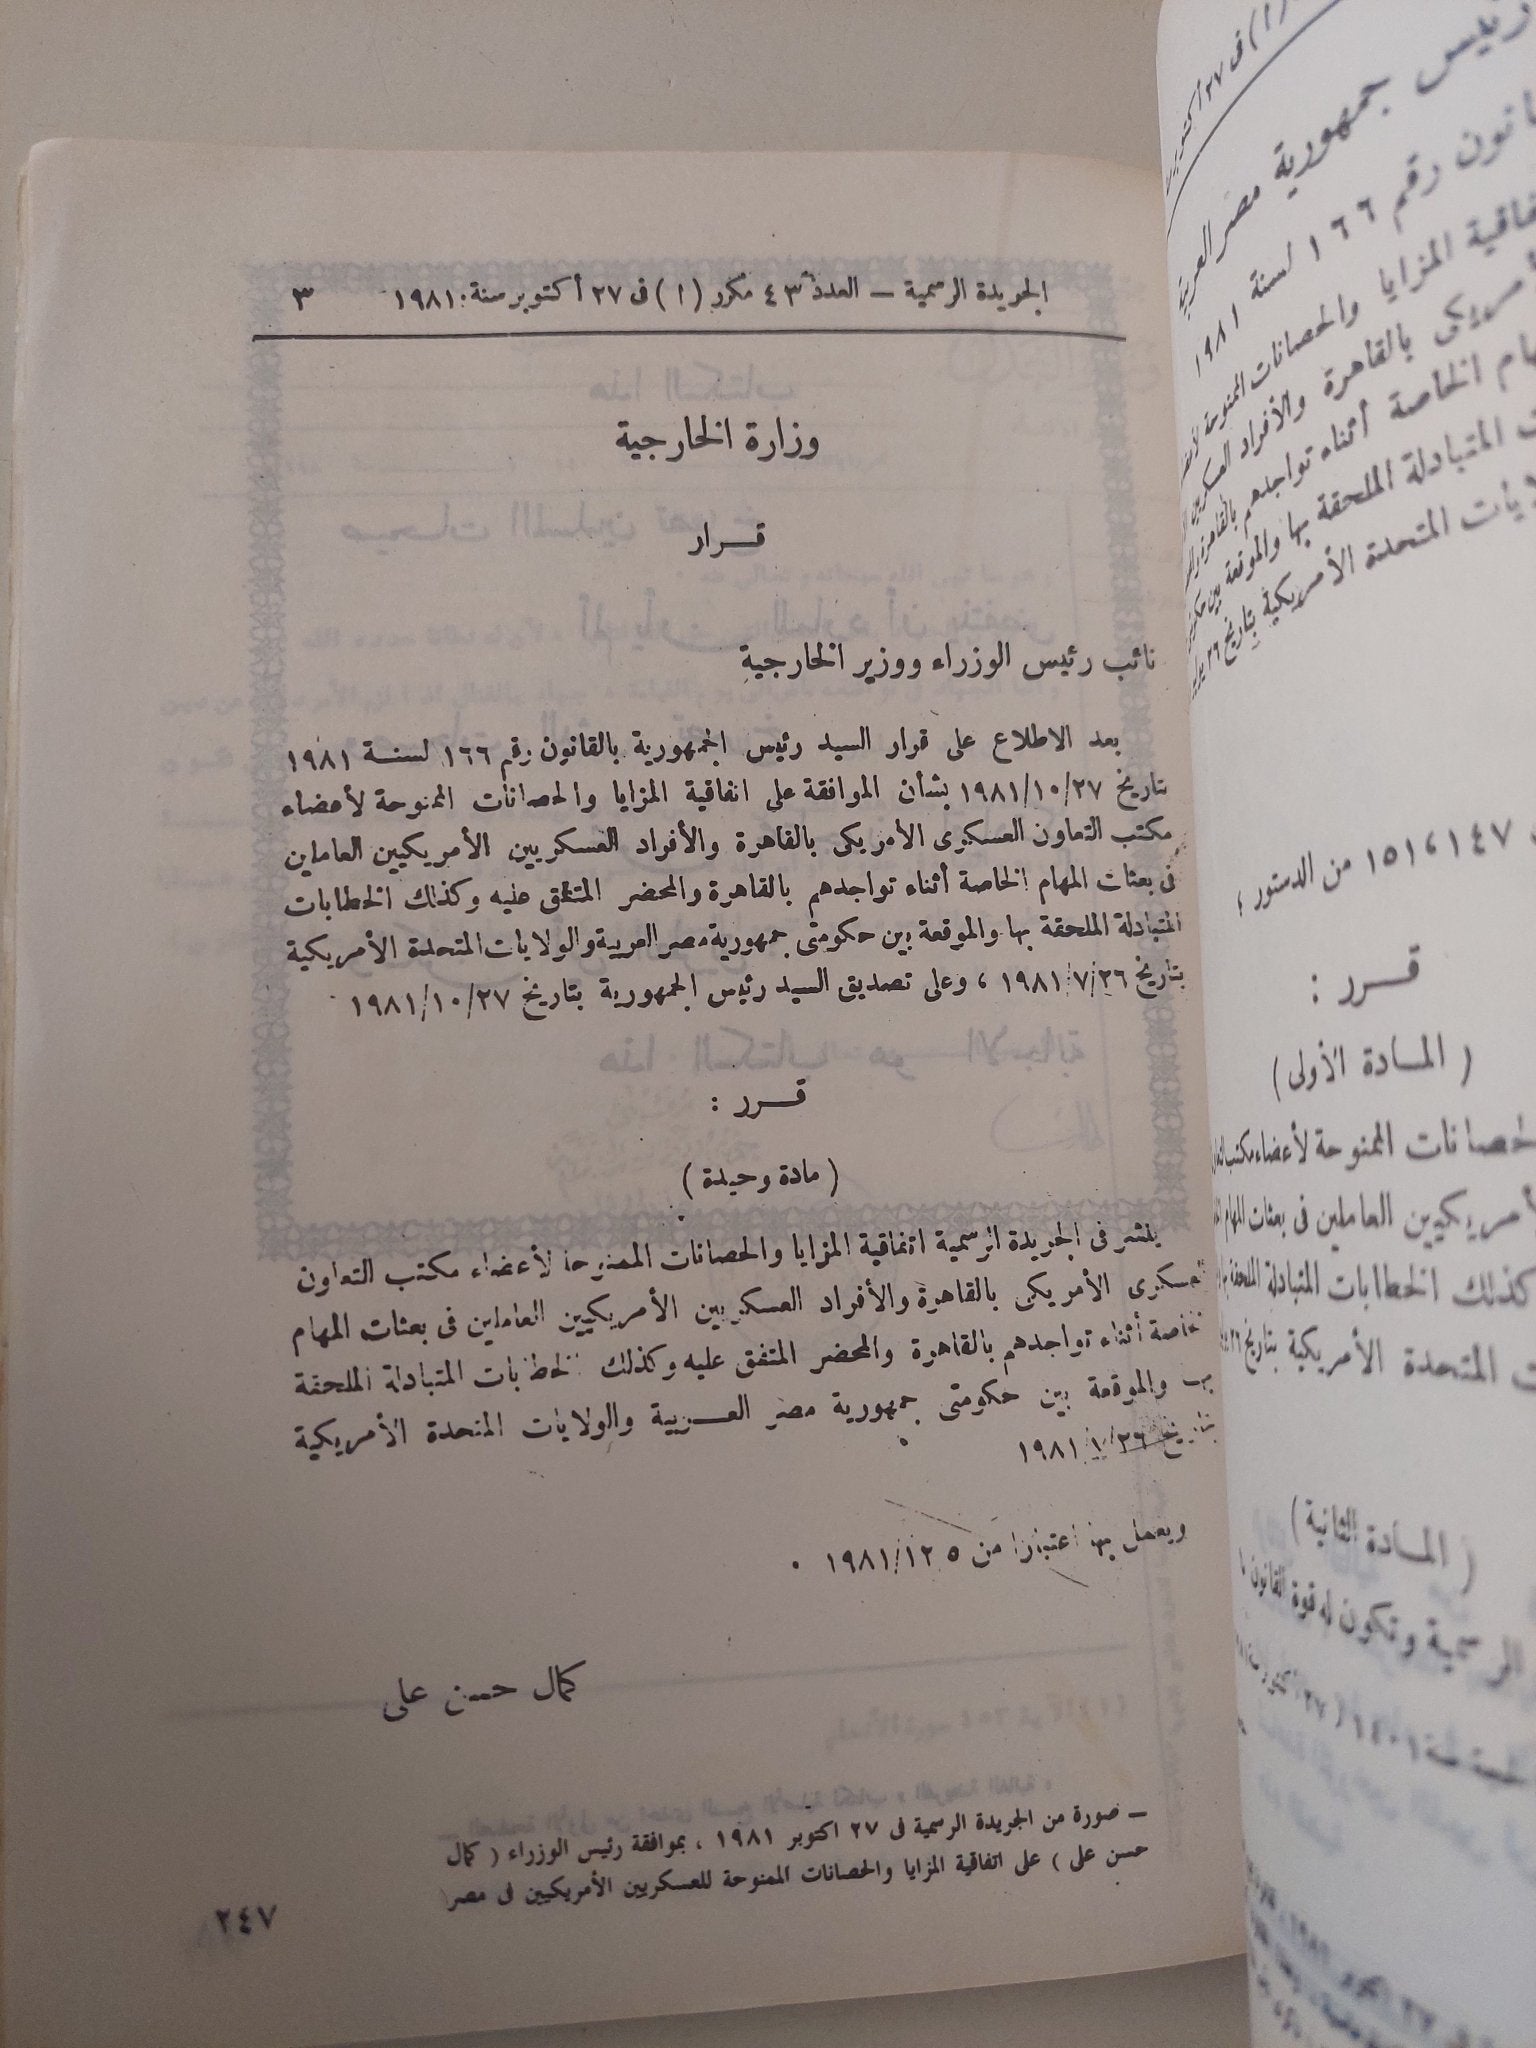 الجريدة الرسمية – العدد ٤٣ مكرر (١) فى ٢٧ أكتوبر سنة ١٩٨١ ٣
وزارة الخارجية
قـــرار
نائب رئيس الوزراء ووزير الخارجية
بعد الاطلاع على قرار السيد رئيس الجمهورية بالقانون رقم ١٦٦ لسنة ١٩٨١
بتاريخ ١٩٨١/١٠/٢٧ بشأن الموافقة على اتفاقية المزايا والحصانات الممنوحة لأعضاء
مكتب التعاون العسكرى الأمريكى بالقاهرة والأفراد العسكريين الأمريكيين العاملين
فى بعثات المهام الخاصة أثناء تواجدهم بالقاهرة والمحضر المتفق عليه وكذلك الخطابات
المتبادلة الملحقة بها والموقعة بين حكومتى جمهورية مصر العربية والولايات المتحدة الأمريكية
بتاريخ ١٩٨١/٧/٢٦ ، وعلى تصديق السيد رئيس الجمهورية بتاريخ ١٩٨١/١٠/٢٧
قـــرر :
( مادة وحيدة )
ينشر فى الجريدة الرسمية اتفاقية المزايا والحصانات الممنوحة لأعضاء مكتب التعاون
العسكرى الأمريكى بالقاهرة والأفراد العسكريين الأمريكيين العاملين فى بعثات المهام
الخاصة أثناء تواجدهم بالقاهرة والمحضر المتفق عليه وكذلك الخطابات المتبادلة الملحقة
بها والموقعة بين حكومتى جمهورية مصر العـــربية والولايات المتحدة الأمريكية
بتاريخ ١٩٨١
ويعمل بها اعتبارا من
كمال حسن على
– صورة من الجريدة الرسمية فى ٢٧ اكتوبر ١٩٨١ ، بموافقة رئيس الوزراء ( كمال
حسن على ) على اتفاقية المزايا والحصانات الممنوحة للعسكريين الأمريكيين فى مصر
٢٤٧
فى ٢٧ أكتوبر
رئيس جمهورية مصر العربية
رقم ١٦٦ لسنة ١٩٨١
المزايا والحصانات الممنوحة
بالقاهرة والأفراد العسكريين
الخاصة أثناء تواجدهم بالقاهرة
المتبادلة الملحقة بها والموقعة بين
المتحدة الأمريكية بتاريخ ٢٦
١٤٧ ، ١٥١ من الدستور ؛
قـــرر :
( المـادة الأولى )
الممنوحة لأعضاء مكتب
العاملين فى بعثات المهام
كذلك الخطابات المتبادلة الملحقة
المتحدة الأمريكية بتاريخ
( المـادة الثانية )
وتكون له قوة القانون